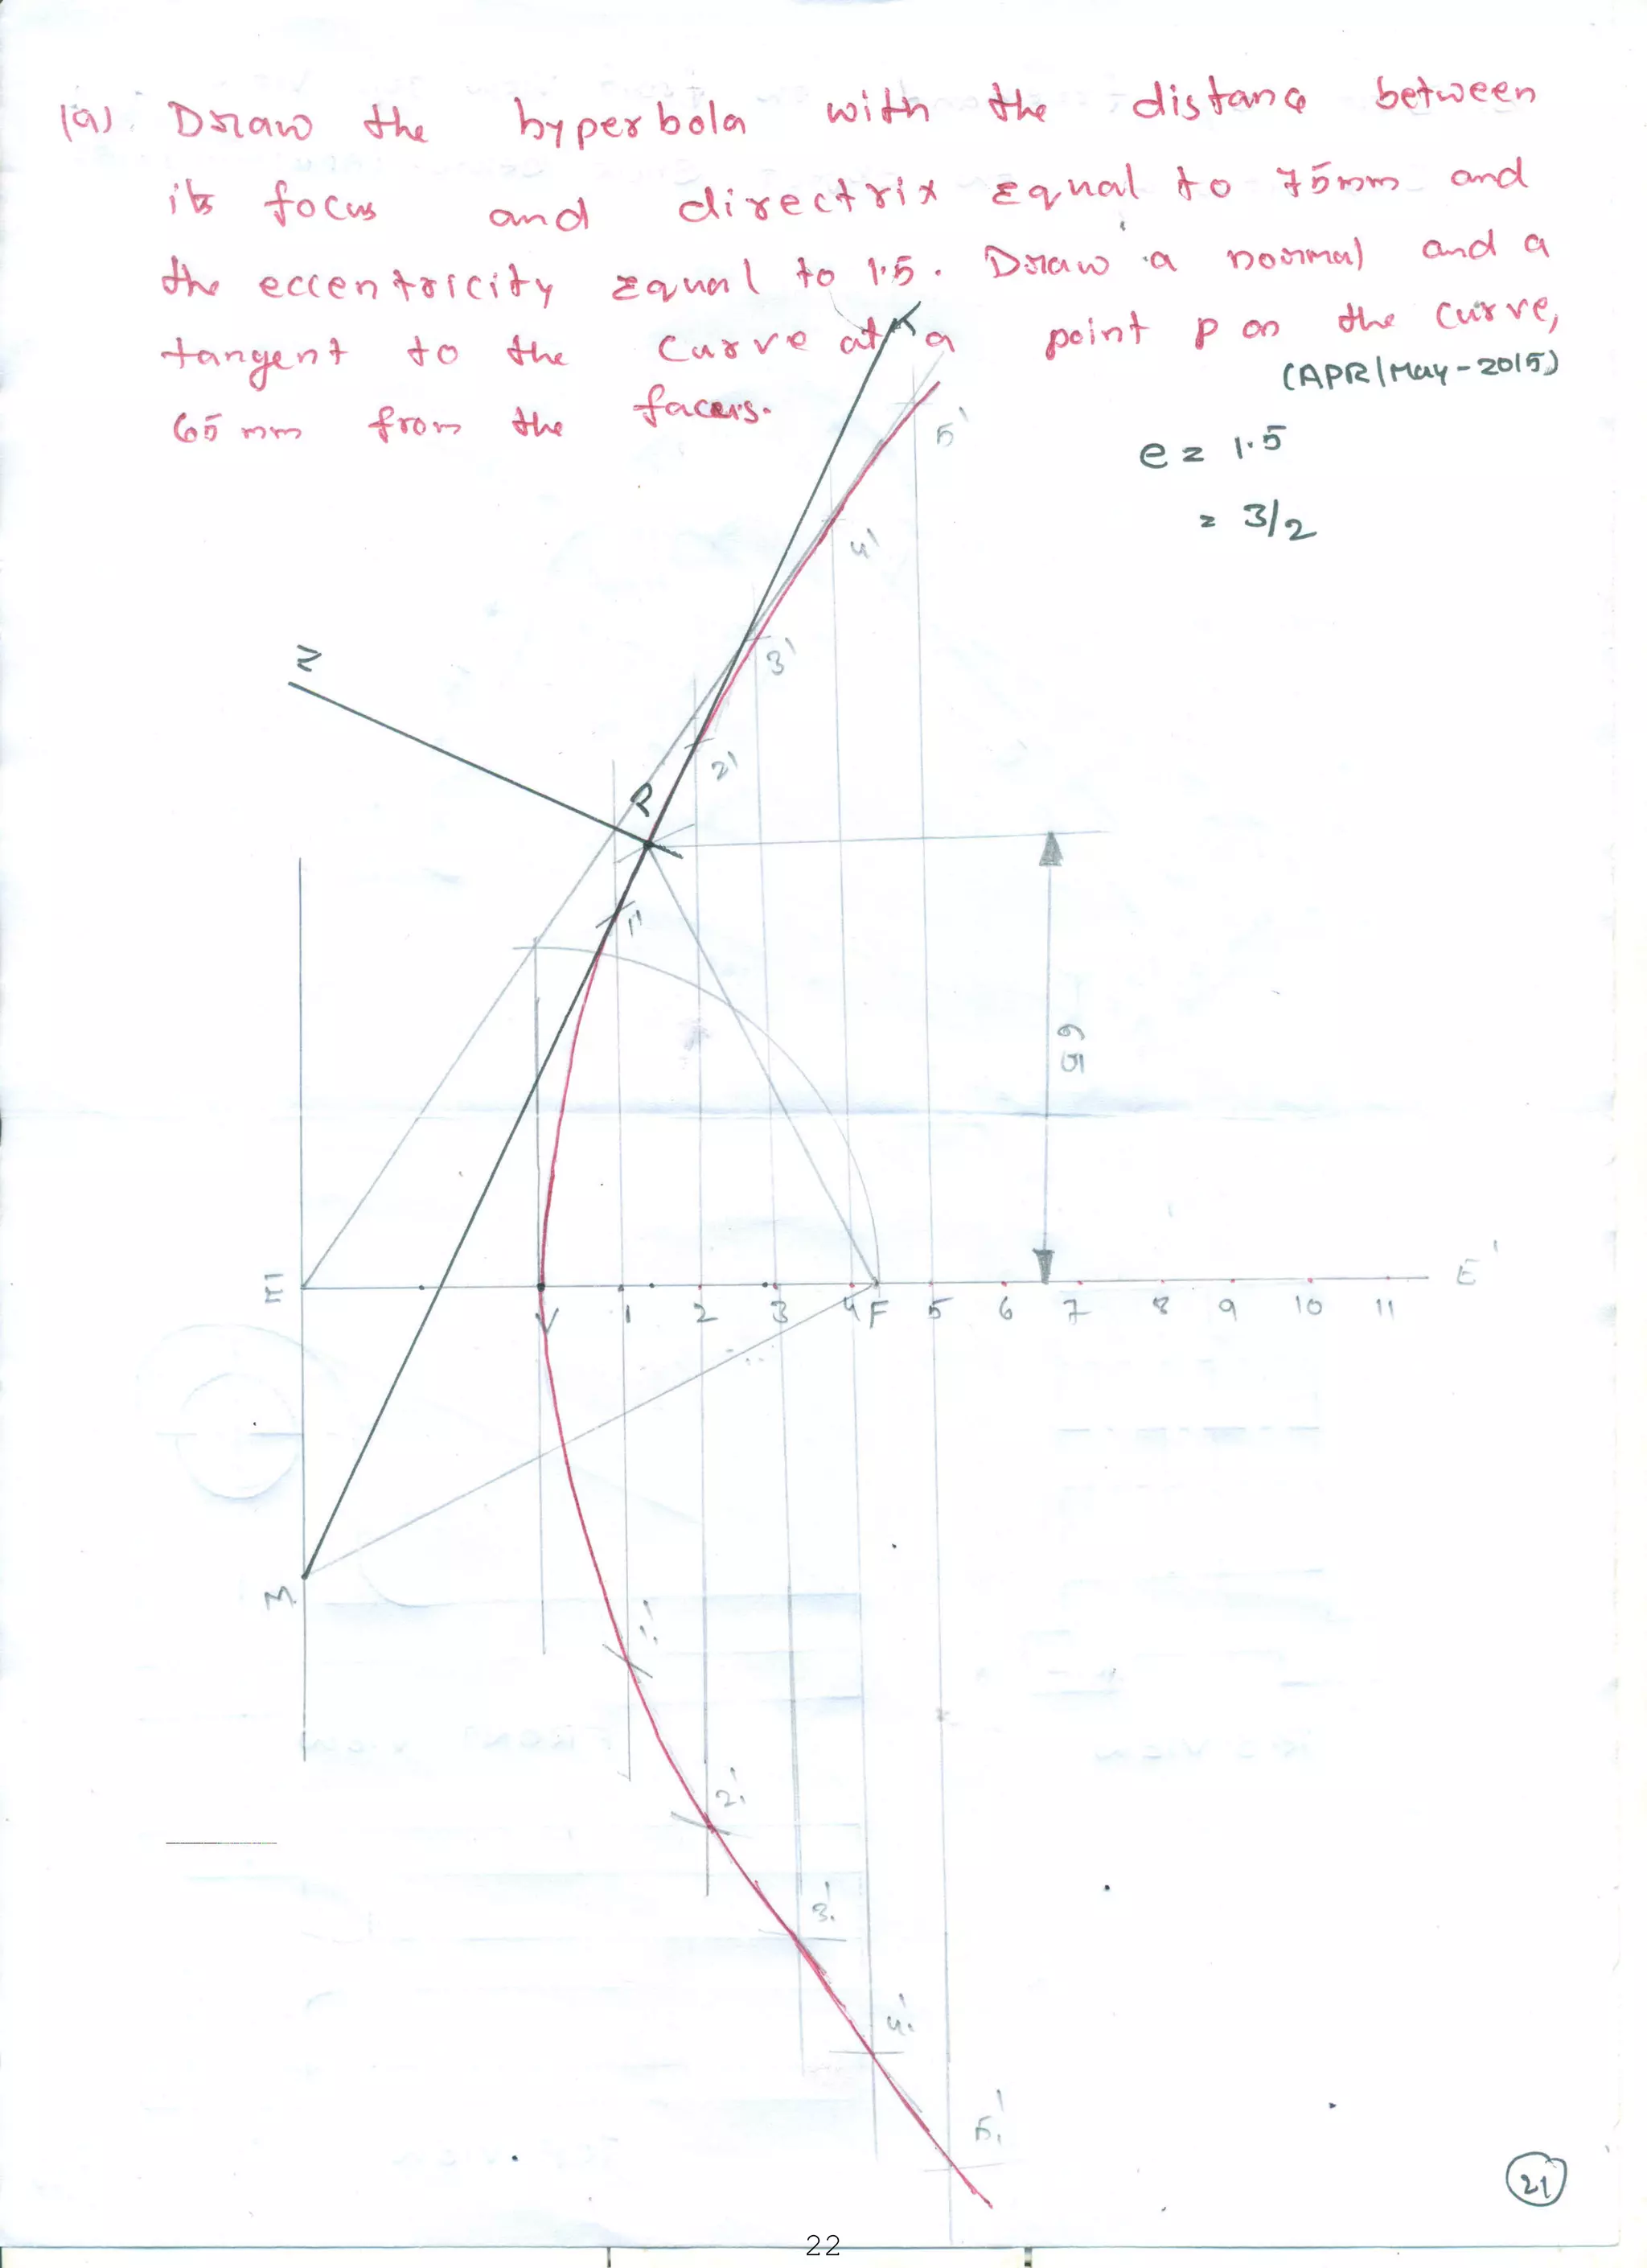 (a) Draw the hyperbola with the distance between
its focus and directrix Equal to 75mm and
the eccentricity Equal to 1.5. Draw a normal and a
tangent to the curve at a point P on the curve,
65 mm from the focus.
(APR/May-2015)
e = 1.5
= 3/2
5'
4'
3'
N
2'
P
1'
65
E
E'
V 1 2 3 4 F 5 6 7 8 9 10 11
M
1'
2'
3'
4'
5'
21
22